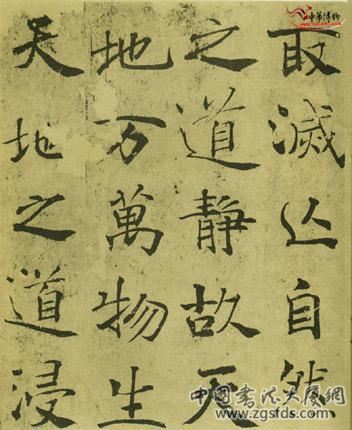 取滅亾自然
之道靜故天
地万萬物生
天地之道浸
中华博物
中國書法大廈網
www.zgsfds.com